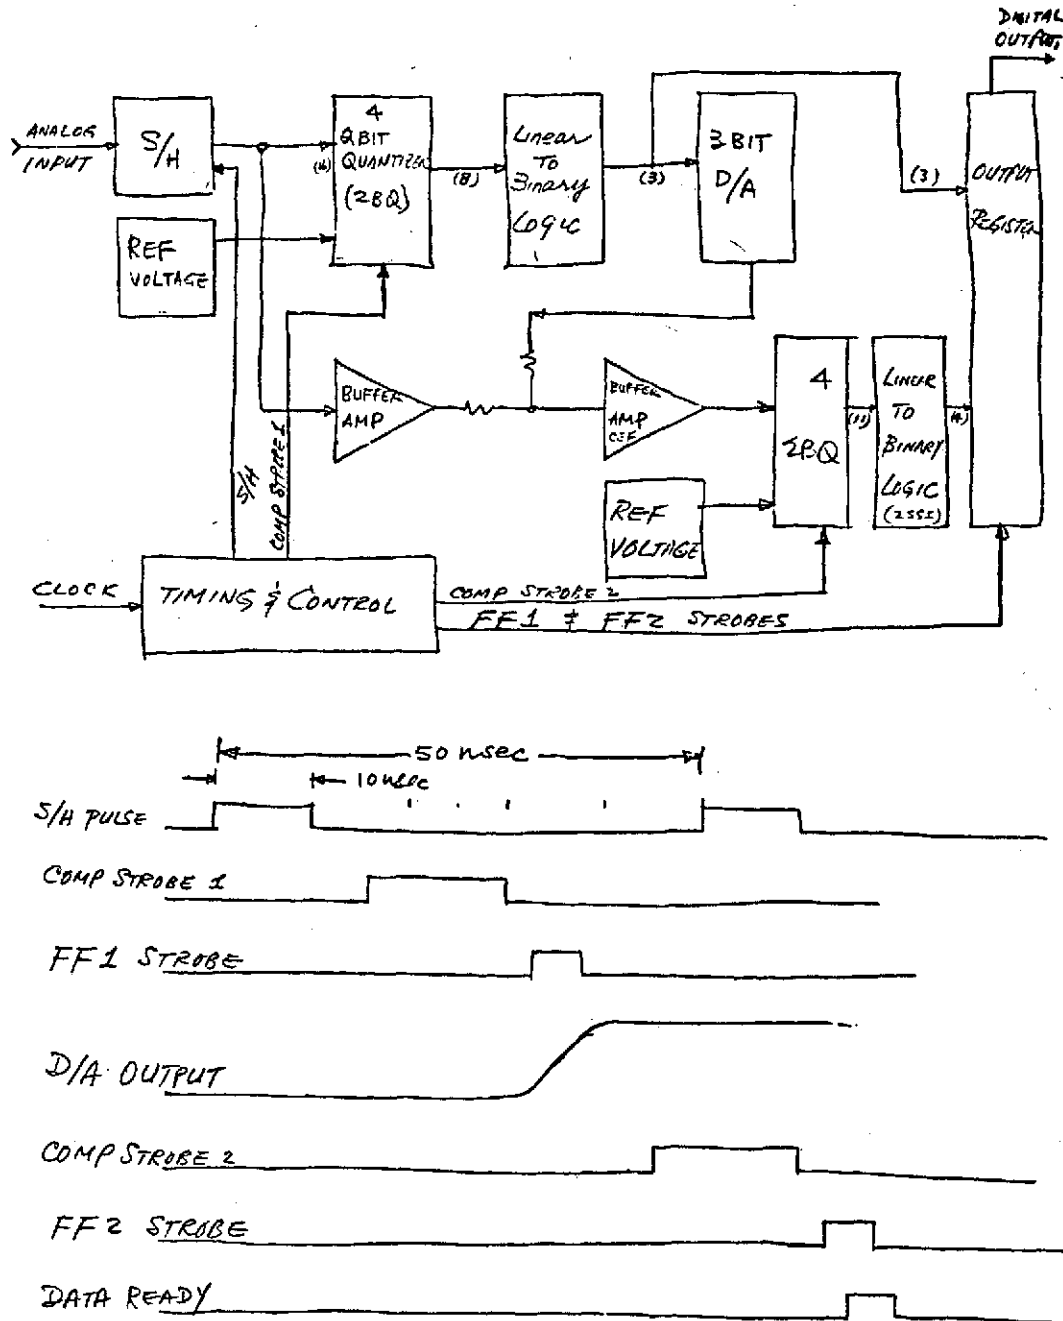 DIGITAL
OUTPUT
ANALOG
INPUT
S/H
4
2 BIT
QUANTIZER
(2BQ)
(8)
LINEAR
TO
BINARY
LOGIC
(3)
3 BIT
D/A
(3)
OUTPUT
REGISTER
REF
VOLTAGE
BUFFER
AMP
BUFFER
AMP
4
2BQ
(11)
LINEAR
TO
BINARY
LOGIC
(2SSI)
(4)
REF
VOLTAGE
S/H
COMP STROBE 1
CLOCK
TIMING & CONTROL
COMP STROBE 2
FF1 & FF2 STROBES
50 nsec
10 nsec
S/H PULSE
COMP STROBE 1
FF1 STROBE
D/A OUTPUT
COMP STROBE 2
FF2 STROBE
DATA READY